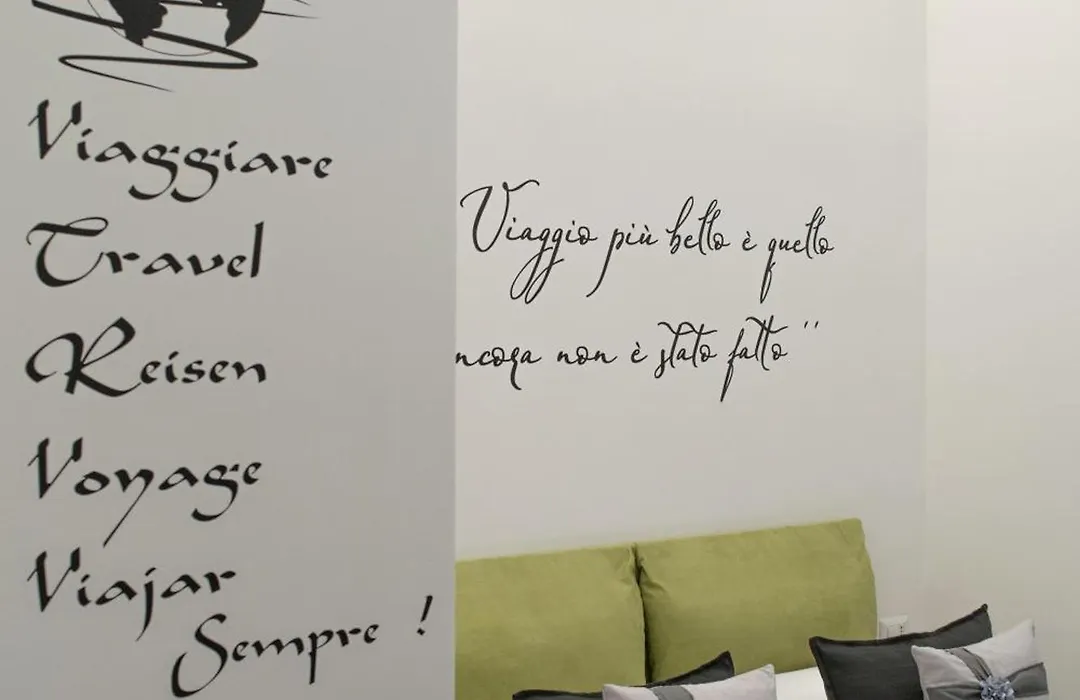 Viaggiare
Travel
Reisen
Voyage
Viajar
Sempre !
Viaggio più bello è quello
ncora non è stato fatto ''